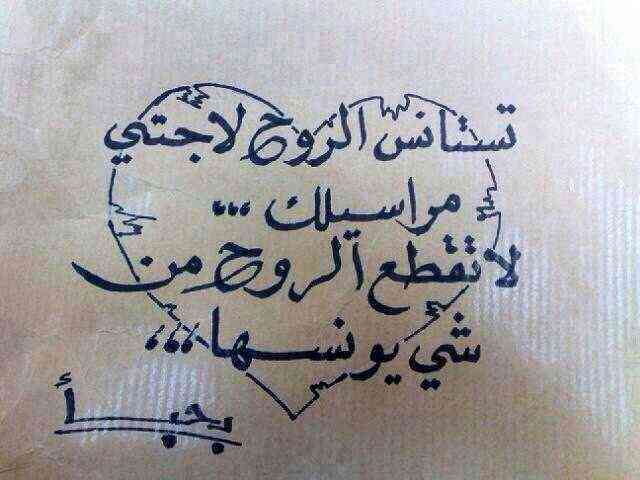 تستانس الروح لاجتني
مراسيلك ...
لا تقطع الروح من
شي يونسها ،،،